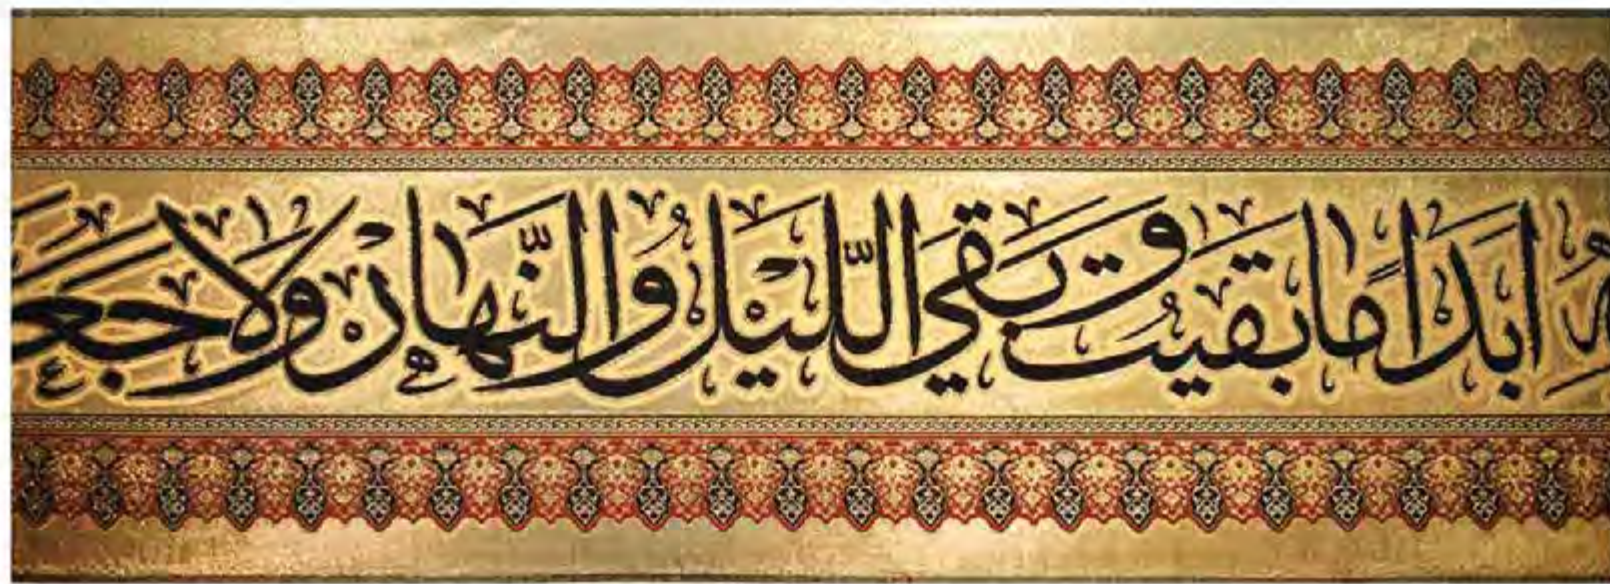 ابداً ما بقيت وبقي الليل والنهار ولا جعـ